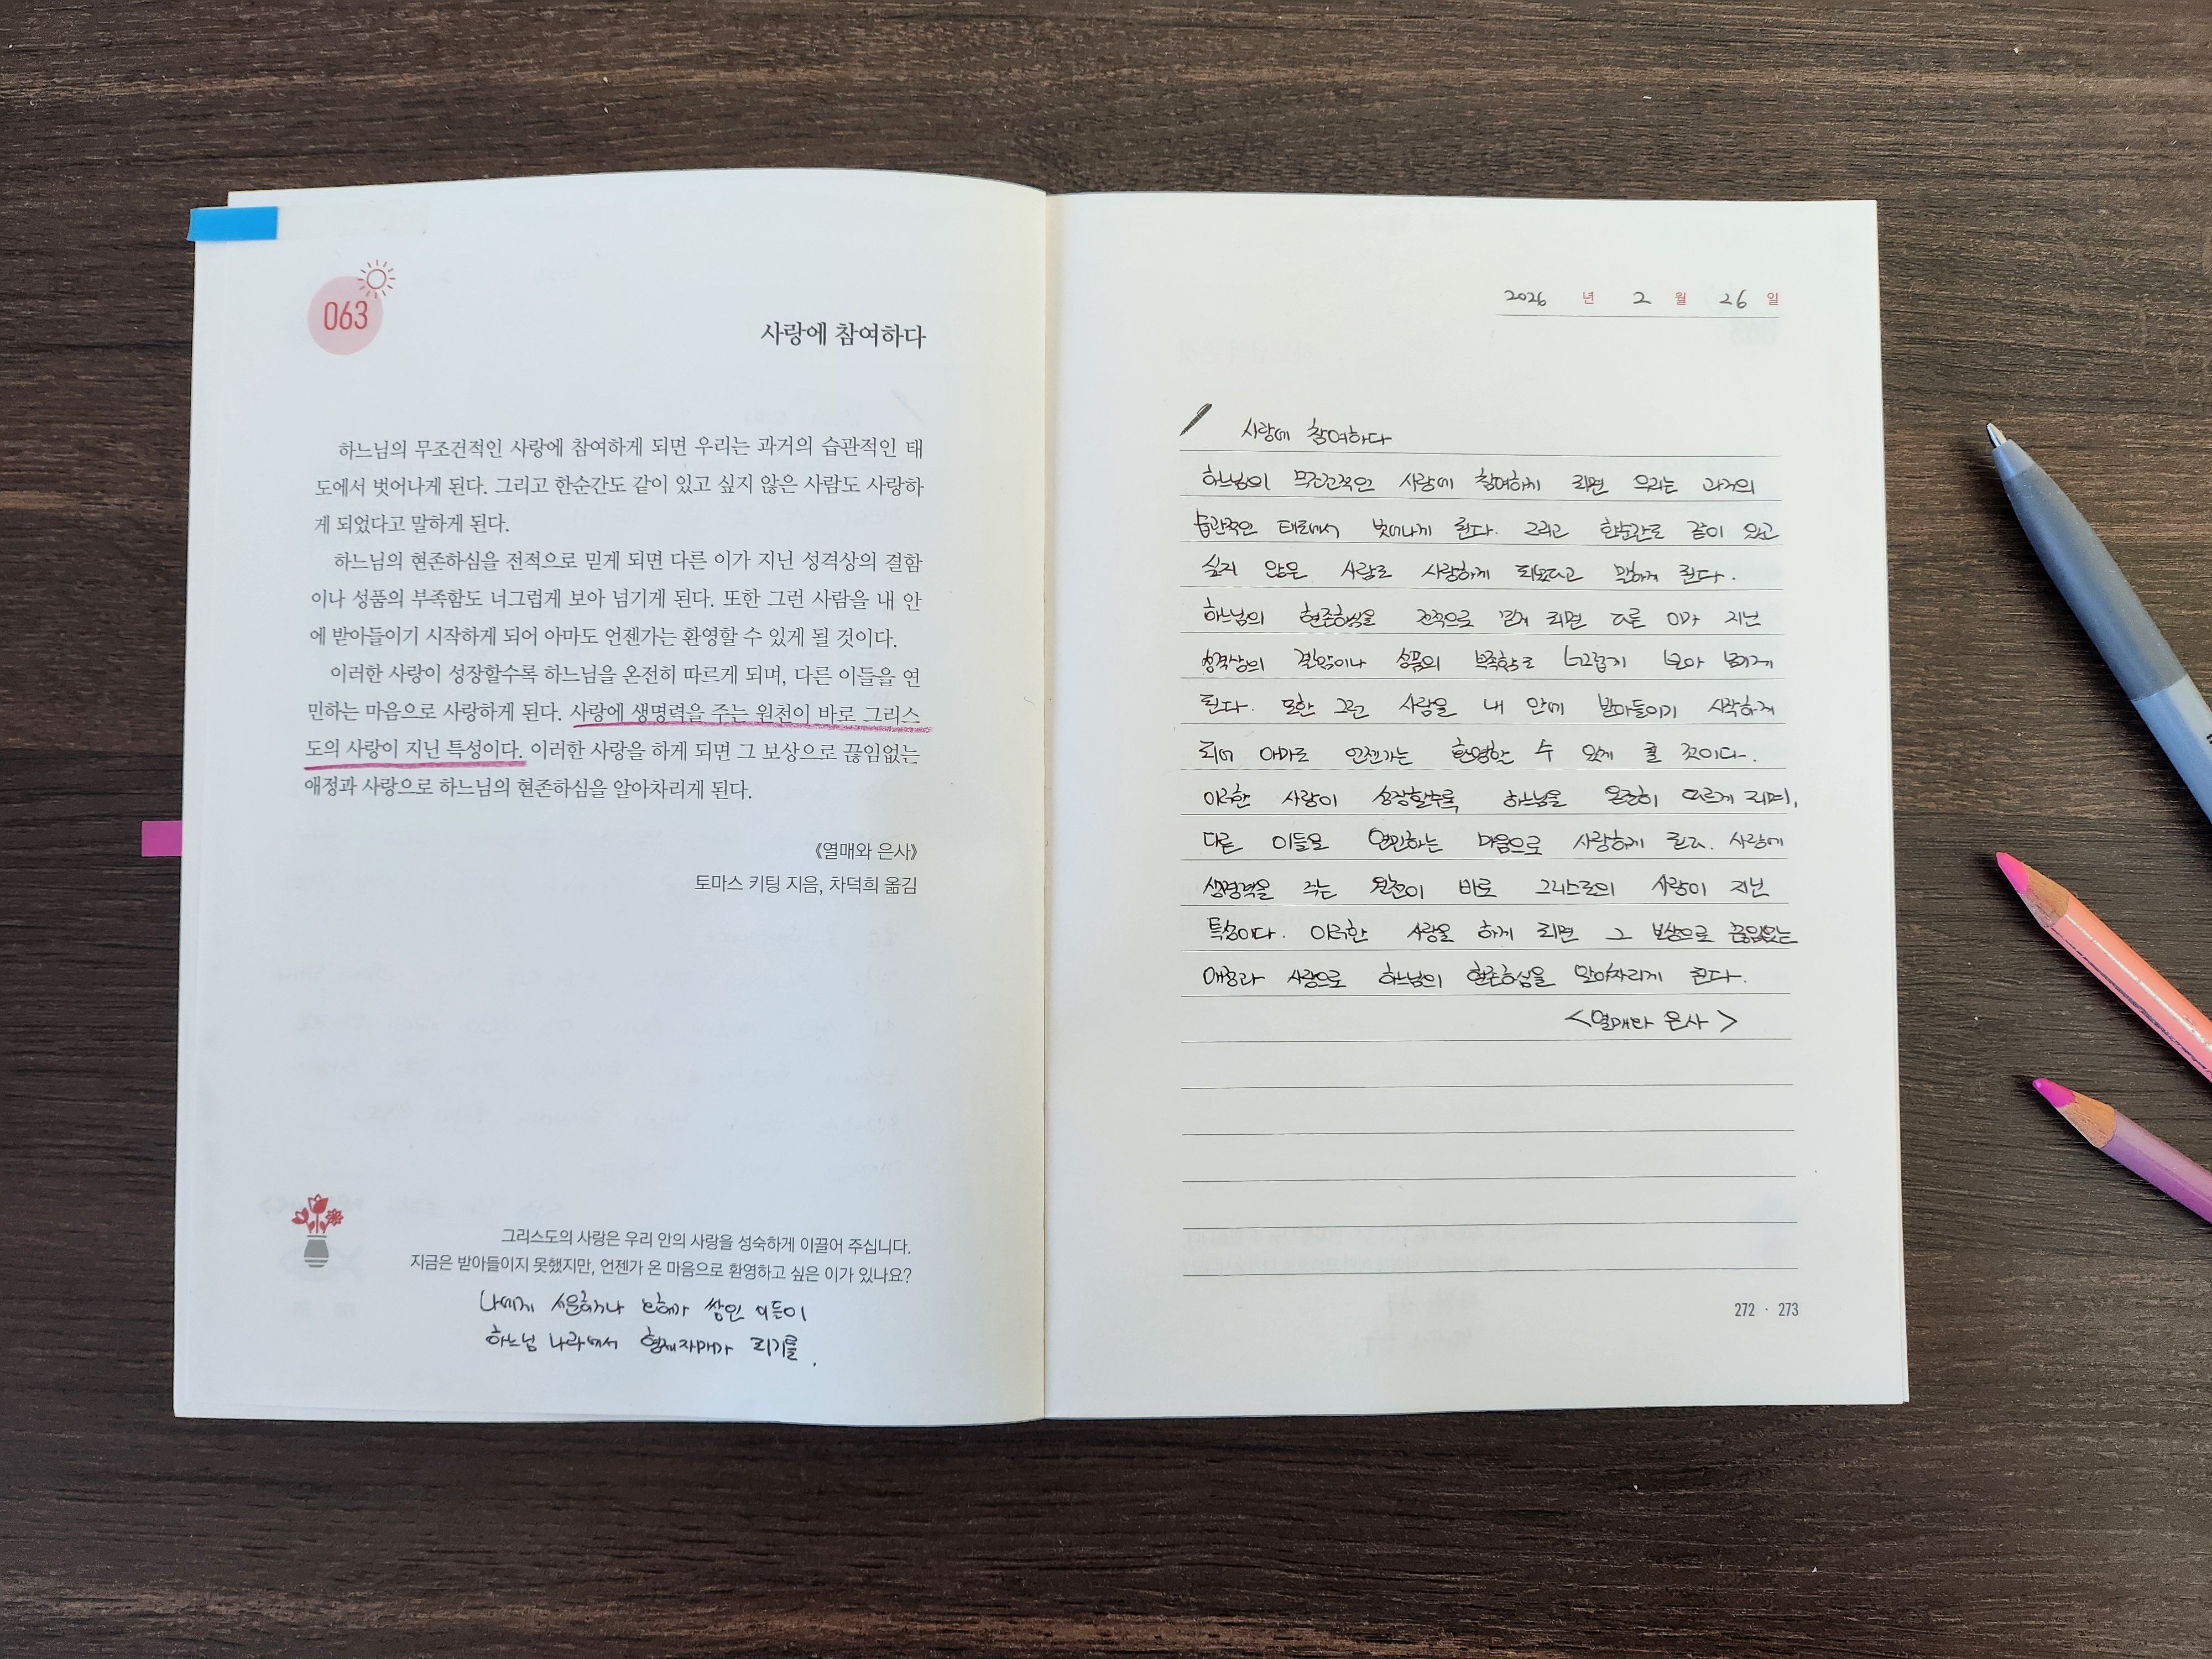 063
사랑에 참여하다
하느님의 무조건적인 사랑에 참여하게 되면 우리는 과거의 습관적인 태
도에서 벗어나게 된다. 그리고 한순간도 같이 있고 싶지 않은 사람도 사랑하
게 되었다고 말하게 된다.
하느님의 현존하심을 전적으로 믿게 되면 다른 이가 지닌 성격상의 결함
이나 성품의 부족함도 너그럽게 보아 넘기게 된다. 또한 그런 사람을 내 안
에 받아들이기 시작하게 되어 아마도 언젠가는 환영할 수 있게 될 것이다.
이러한 사랑이 성장할수록 하느님을 온전히 따르게 되며, 다른 이들을 연
민하는 마음으로 사랑하게 된다. 사랑에 생명력을 주는 원천이 바로 그리스
도의 사랑이 지닌 특성이다. 이러한 사랑을 하게 되면 그 보상으로 끊임없는
애정과 사랑으로 하느님의 현존하심을 알아차리게 된다.
《열매와 은사》
토마스 키팅 지음, 차덕희 옮김
그리스도의 사랑은 우리 안의 사랑을 성숙하게 이끌어 주십니다.
지금은 받아들이지 못했지만, 언젠가 온 마음으로 환영하고 싶은 이가 있나요?
나에게 서운하거나 오해가 쌓인 이들이
하느님 나라에서 형제자매가 되기를.
2026 년 2 월 26 일
사랑에 참여하다
하느님의 무조건적인 사랑에 참여하게 되면 우리는 과거의
습관적인 태도에서 벗어나게 된다. 그리고 한순간도 같이 있고
싶지 않은 사람도 사랑하게 되었다고 말하게 된다.
하느님의 현존하심을 전적으로 믿게 되면 다른 이가 지닌
성격상의 결함이나 성품의 부족함도 너그럽게 보아 넘기게
된다. 또한 그런 사람을 내 안에 받아들이기 시작하게
되어 아마도 언젠가는 환영할 수 있게 될 것이다.
이러한 사랑이 성장할수록 하느님을 온전히 따르게 되며,
다른 이들을 연민하는 마음으로 사랑하게 된다. 사랑에
생명력을 주는 원천이 바로 그리스도의 사랑이 지닌
특성이다. 이러한 사랑을 하게 되면 그 보상으로 끊임없는
애정과 사랑으로 하느님의 현존하심을 알아차리게 된다.
<열매와 은사>
272 · 273